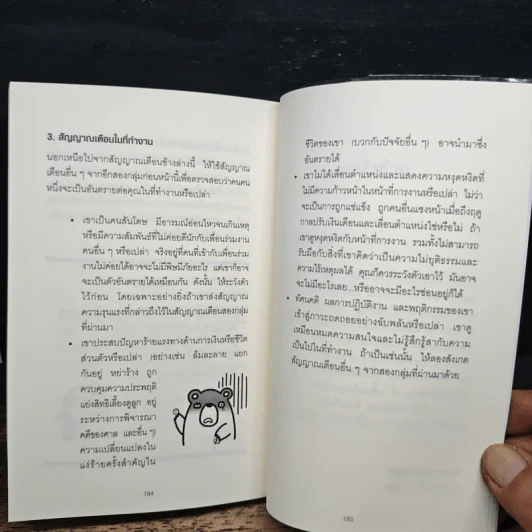 3. สัญญาณเตือนในที่ทำงาน
นอกเหนือไปจากสัญญาณเตือนข้างล่างนี้ ให้ใช้สัญญาณ
เตือนอื่น ๆ จากอีกสองกลุ่มก่อนหน้านี้เพื่อตรวจสอบว่าคนคน
หนึ่งจะเป็นอันตรายต่อคุณในที่ทำงานหรือเปล่า
• เขาเป็นคนสันโดษ มีอารมณ์อ่อนไหวจนเกินเหตุ
หรือมีความสัมพันธ์ที่ไม่ค่อยดีนักกับเพื่อนร่วมงาน
คนอื่น ๆ หรือเปล่า จริงอยู่ที่คนที่เข้ากับเพื่อนร่วม
งานไม่ค่อยได้อาจจะไม่มีพิษมีภัยอะไร แต่เขาก็อาจ
จะเป็นตัวอันตรายได้เหมือนกัน ดังนั้น ให้ระวังตัว
ไว้ก่อน โดยเฉพาะอย่างยิ่งถ้าเขาส่งสัญญาณ
ความรุนแรงที่กล่าวถึงไว้ในสัญญาณเตือนสองกลุ่ม
ที่ผ่านมา
• เขาประสบปัญหาร้ายแรงทางด้านการเงินหรือชีวิต
ส่วนตัวหรือเปล่า (อย่างเช่น ล้มละลาย แยก
กันอยู่ หย่าร้าง ถูก
ควบคุมความประพฤติ
แย่งสิทธิเลี้ยงดูลูก อยู่
ระหว่างการพิจารณา
คดีของศาล และอื่น ๆ)
ความเปลี่ยนแปลงใน
แง่ร้ายครั้งสำคัญใน
184
ชีวิตของเขา (บวกกับปัจจัยอื่น ๆ) อาจนำมาซึ่ง
อันตรายได้
• เขาไม่ได้เลื่อนตำแหน่งและแสดงความหงุดหงิดที่
ไม่มีความก้าวหน้าในหน้าที่การงานหรือเปล่า ไม่ว่า
จะเป็นการถูกแช่แข็ง ถูกคนอื่นแซงหน้าเมื่อถึงฤดู
กาลปรับเงินเดือนและเลื่อนตำแหน่งใช่หรือไม่ ถ้า
เขาดูหงุดหงิดกับหน้าที่การงาน รวมทั้งไม่สามารถ
รับมือกับสิ่งที่เขาคิดว่าเป็นความไม่ยุติธรรมและ
ความไร้เหตุผลได้ คุณก็ควรระวังตัวเอาไว้ มันอาจ
จะไม่มีอะไรเลย...หรืออาจจะมีอะไรซ่อนอยู่ก็ได้
• ทัศนคติ ผลการปฏิบัติงาน และพฤติกรรมของเขา
เข้าสู่ภาวะถดถอยอย่างฉับพลันหรือเปล่า เขาดู
เหมือนหมดความสนใจและไม่รู้สึกรู้สากับความ
เป็นไปในที่ทำงาน ถ้าเป็นเช่นนั้น ให้ลองสังเกต
สัญญาณเตือนอื่น ๆ จากสองกลุ่มที่ผ่านมาด้วย
185